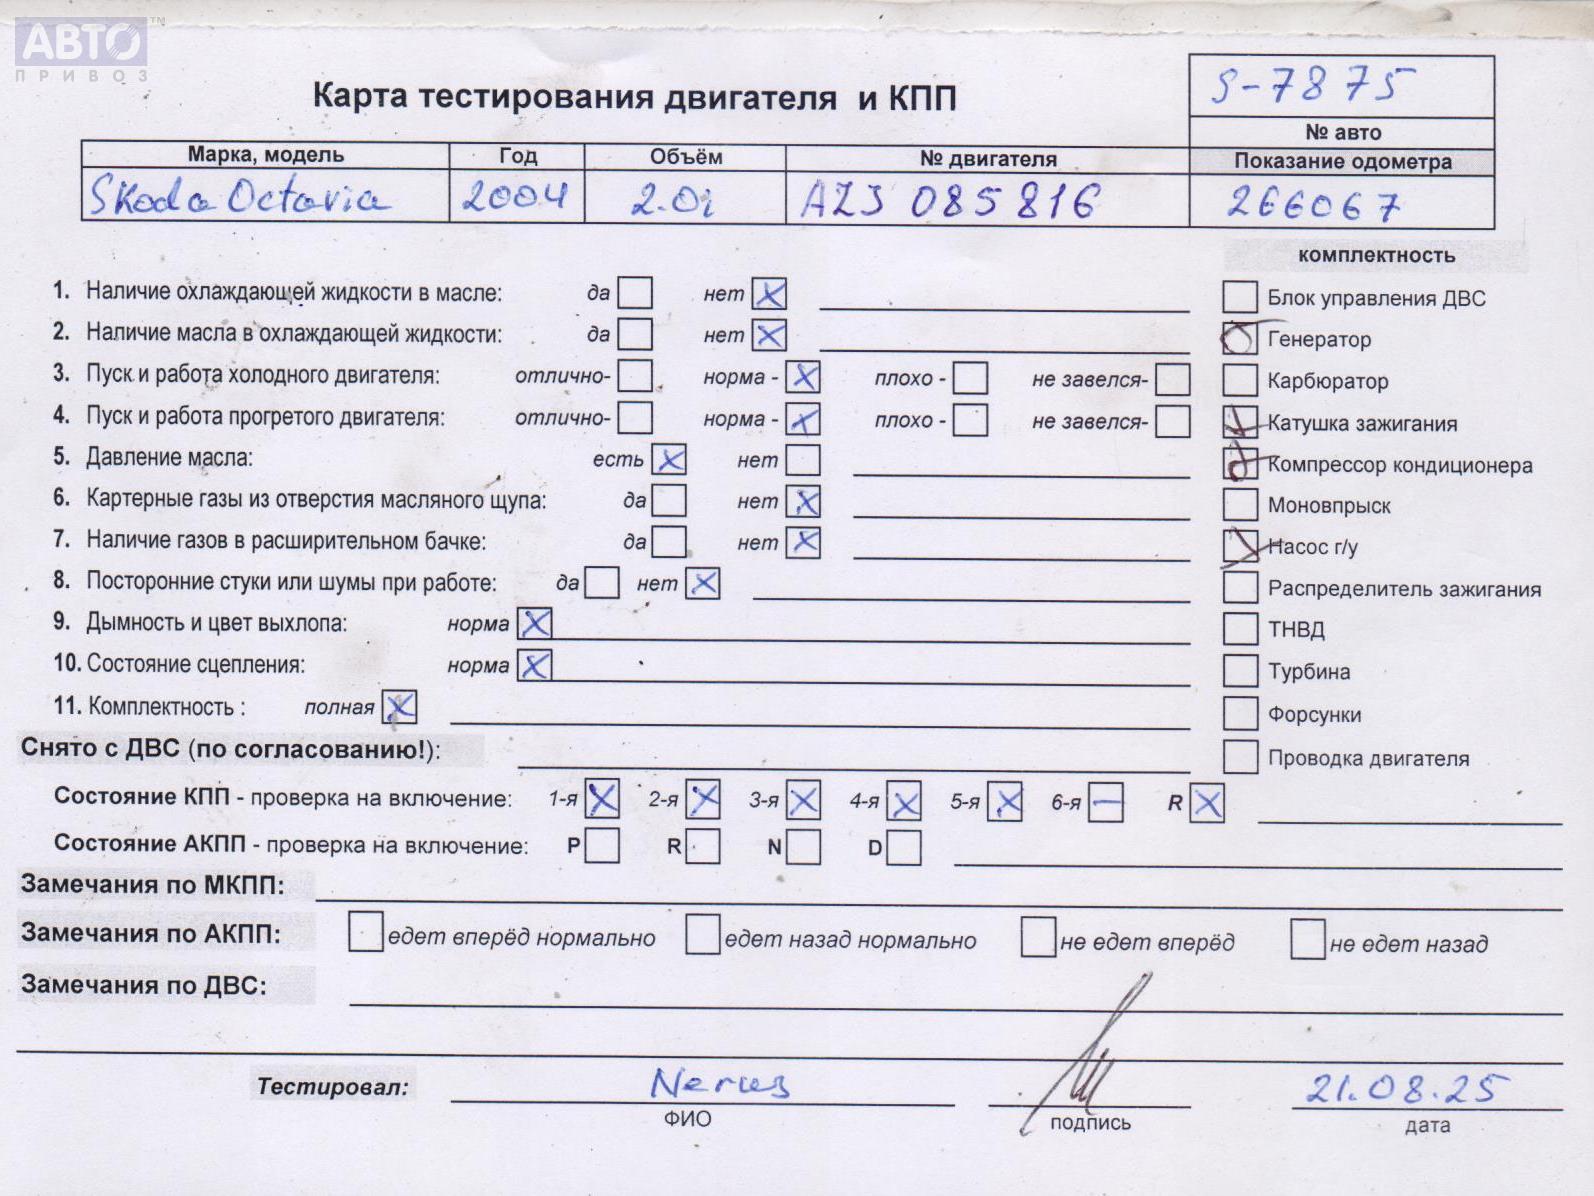 АВТО TM
ПРИВОЗ
Карта тестирования двигателя и КПП
S-7875
№ авто
Марка, модель Год Объём № двигателя Показание одометра
Skoda Octavia 2004 2.0i AZJ 085816 266067
комплектность
1. Наличие охлаждающей жидкости в масле: да нет X
Блок управления ДВС
2. Наличие масла в охлаждающей жидкости: да нет X
Генератор
3. Пуск и работа холодного двигателя: отлично- норма - X плохо - не завелся-
Карбюратор
4. Пуск и работа прогретого двигателя: отлично- норма - X плохо - не завелся-
Катушка зажигания
5. Давление масла: есть X нет
Компрессор кондиционера
6. Картерные газы из отверстия масляного щупа: да нет X
Моновпрыск
7. Наличие газов в расширительном бачке: да нет X
Насос г/у
8. Посторонние стуки или шумы при работе: да нет X
Распределитель зажигания
9. Дымность и цвет выхлопа: норма X
ТНВД
10. Состояние сцепления: норма X
Турбина
11. Комплектность : полная X
Форсунки
Снято с ДВС (по согласованию!):
Проводка двигателя
Состояние КПП - проверка на включение: 1-я X 2-я X 3-я X 4-я X 5-я X 6-я — R X
Состояние АКПП - проверка на включение: P R N D
Замечания по МКПП:
Замечания по АКПП: едет вперёд нормально едет назад нормально не едет вперёд не едет назад
Замечания по ДВС:
Тестировал: 21.08.25
ФИО подпись дата